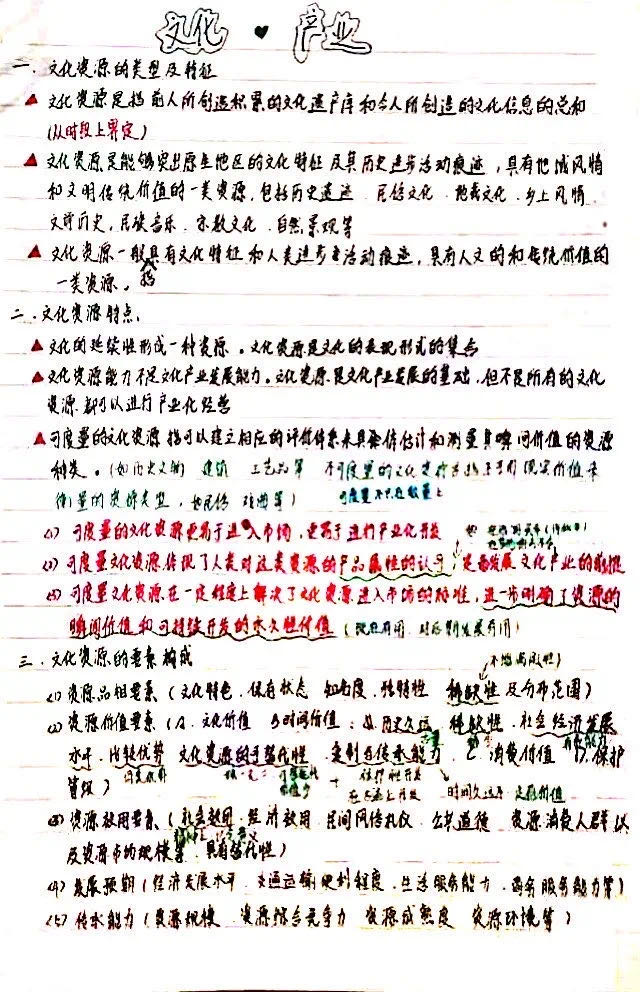 文化 ♥ 产业
一. 文化资源的类型及特征
▲ 文化资源是指前人所创造积累的文化遗产库和今人所创造的文化信息的总和
(从时段上界定)
▲ 文化资源是能够突出原生地区的文化特征及其历史进步活动痕迹，具有地域风情
和文明传统价值的一类资源，包括历史遗迹、民俗文化、地域文化、乡土风情、
文学历史，民族音乐、宗教文化、自然景观等
▲ 文化资源一般指具有文化特征和人类进步活动痕迹，具有人文的和传统价值的
一类资源。
二. 文化资源特点.
▲ 文化的延续性形成一种资源。文化资源是文化的表现形式的集合
▲ 文化资源能力不是文化产业发展能力。文化资源是文化产业发展的基础，但不是所有的文化
资源都可以进行产业化经营
▲ 可度量的文化资源指可以建立相应的评价体系来具体估计和测量其瞬间价值的资源
种类。(如历史文物 建筑 工艺品等 不可度量的文化
衡量的资源类型，如民俗 戏曲等) 可度量不只在数量上
(1) 可度量的文化资源更易于进入市场，更易于进行产业化开发
(2) 可度量文化资源体现了人类对这类资源的产品属性的认可，是发展文化产业的
(3) 可度量文化资源在一定程度上解决了文化资源进入市场的标准，进一步明确了资源的
瞬间价值和可持续开发的永久性价值 (现在有用 对后期发展有用)
三. 文化资源的要素构成
(1) 资源品相要素 (文化特色、保存状态 知名度、独特性 稀缺性及分布范围)
(2) 资源价值要素 (A. 文化价值 B 时间价值：历史久远 稀缺性、社会经济发展
水平、比较优势 文化资源的可替代性 复制与传承能力、C. 消费价值 D. 保护
等级)
时间久远不一定有价值
(3) 资源效用要素 (社会效用、经济效用、民间风俗礼仪、公共道德 资源消费人群以
及资源市的规模等、具有替代性)
(4) 发展预期 (经济发展水平、交通运输便利程度、生活服务能力、商务服务能力等)
(5) 传承能力 (资源规模 资源综合竞争力 资源成熟度 资源环境等)